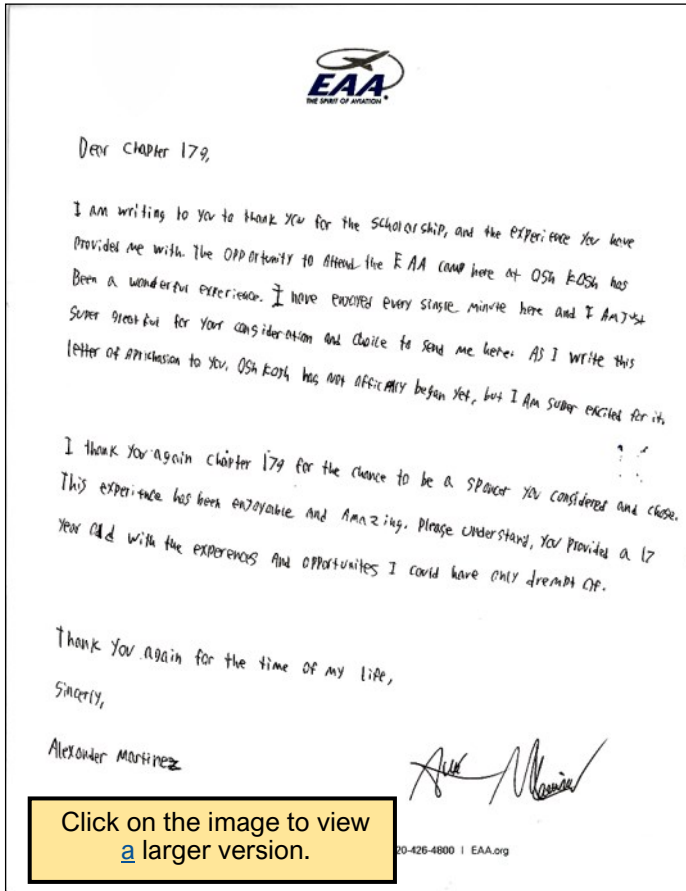 EAA
THE SPIRIT OF AVIATION
Dear Chapter 179,
I am writing to you to thank you for the scholarship, and the experience you have
provided me with. The opportunity to attend the EAA camp here at Osh Kosh has
Been a wonderful experience. I have enjoyed every single minute here and I Am Just
super greatful for your consideration and choice to send me here. As I write this
letter of aprichasion to you, Osh Kosh has not officaly began yet, but I Am super excited for it.
I thank you again chapter 179 for the chance to be a you considered and chose.
This experience has been enjoyable and Amazing. Please understand, you provided a 17
year old with the experences And opportunites I could have only drempt of.
Thank you again for the time of my life,
Sincerly,
Alexander Martinez
Click on the image to view
a larger version.
20-426-4800 | EAA.org